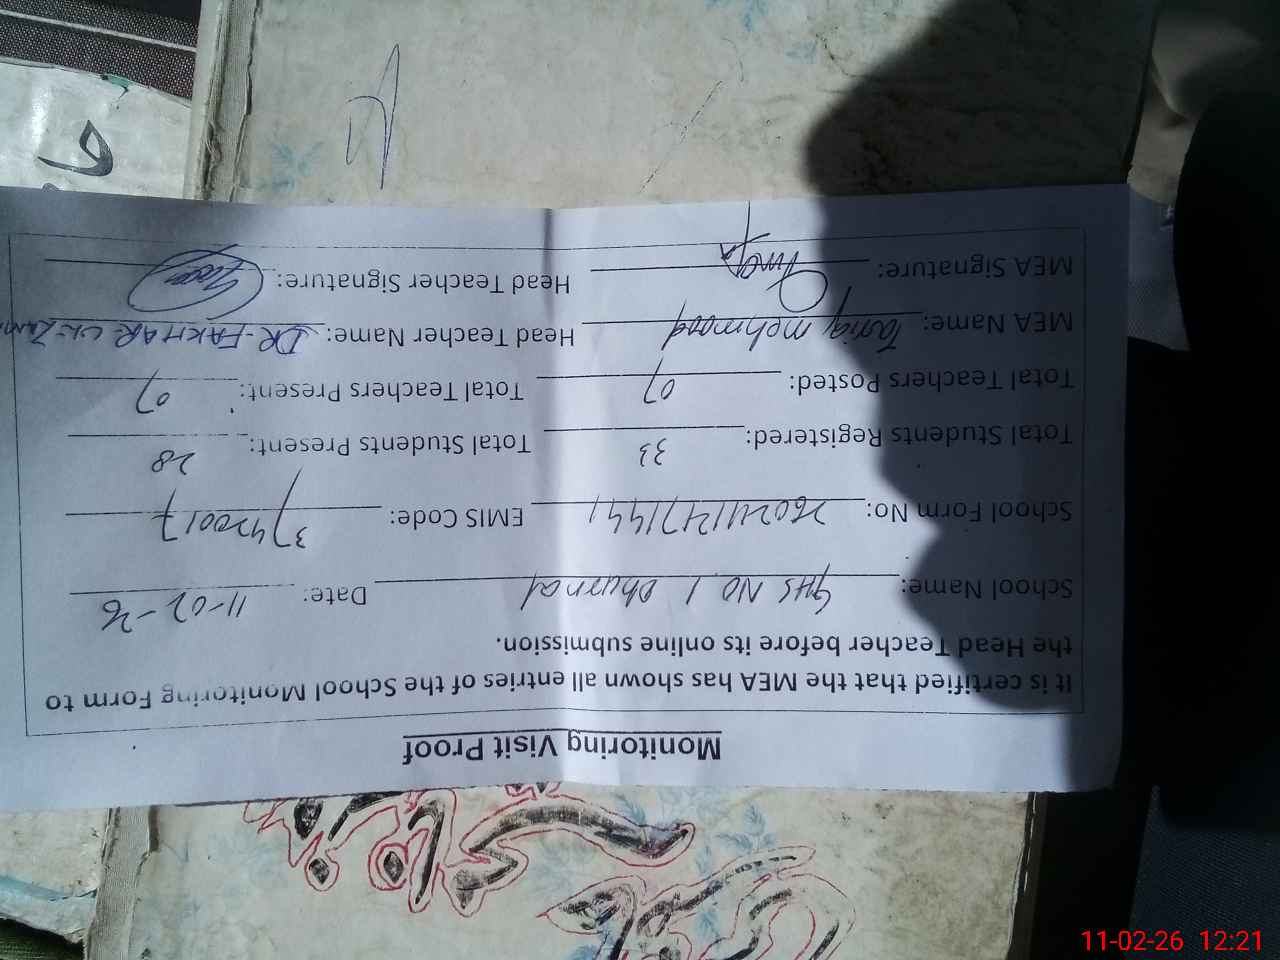 Monitoring Visit Proof
It is certified that the MEA has shown all entries of the School Monitoring Form to
the Head Teacher before its online submission.
School Name: GHS NO 1 Dhurnal Date: 11-02-26
School Form No: EMIS Code: 37420017
Total Students Registered: 33 Total Students Present: 28
Total Teachers Posted: 07 Total Teachers Present: 07
MEA Name: Tariq mehmood Head Teacher Name: DR. FAKHAR
MEA Signature: Head Teacher Signature:
11-02-26 12:21